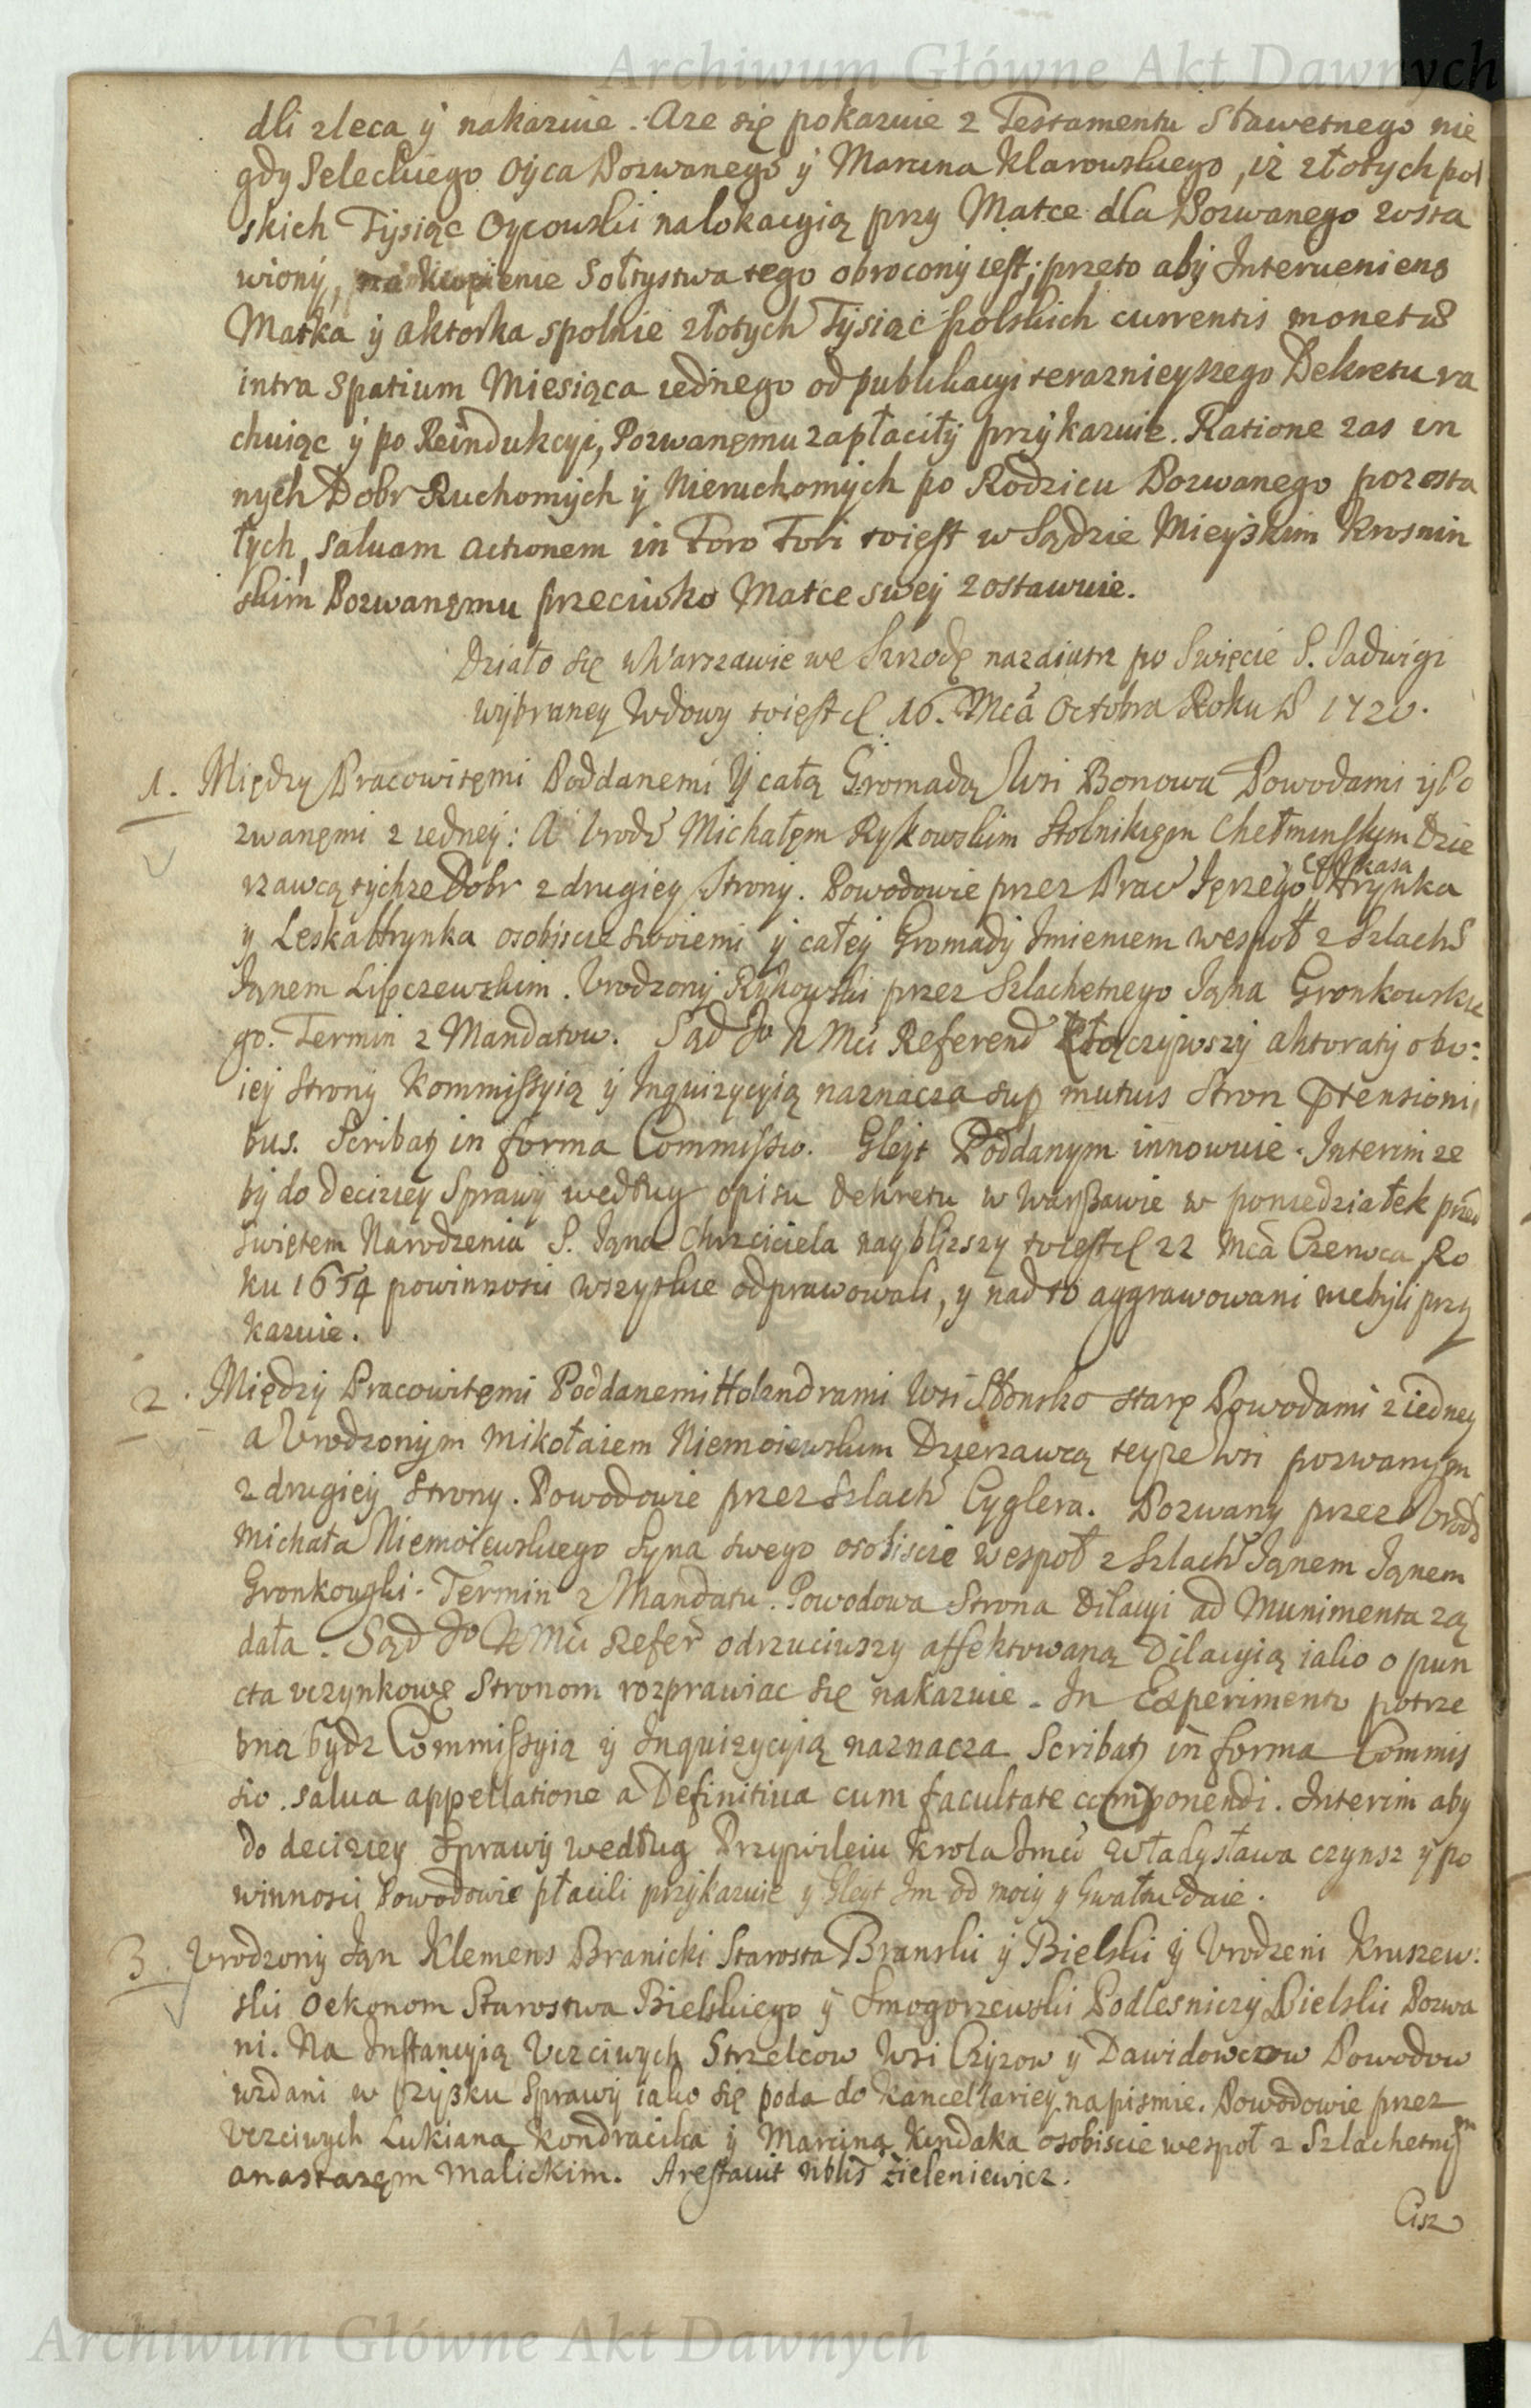 Archiwum Główne Akt Dawnych
dli zleca ÿ nakazuie. Aze się pokazuie z Testamentu Sławetnego nie
gdy Seleckiego Oÿca Pozwanego ÿ Marcina Klarowskiego, iż złotych pol
skich Tysiąc Oycowski na lokacyią przy Matce dla Pozwanego zosta
wionÿ, na kupienie Sołtystwa tego obroconÿ iest; przeto abÿ Interueniens
Matka ÿ aktorka spolnie złotych Tÿsiąc polskich currentis monetæ
intra spatium Miesiąca iednego od publikacyi teraznieyszego Dekretu ra
chuiąc ÿ po Reindukcÿi, Pozwanemu zapłaciłÿ przÿkazuie. Ratione zas in
nych Dobr Ruchomÿch ÿ Nieruchomÿch po Rodzicu Pozwanego pozosta
łych, saluam actionem in Foro Fori toiest w Sądzie Mieÿskim Krosnin
skim Pozwanemu przeciwko Matce sweÿ zostawuie.
Działo się w Warszawie we Szrodę nazaiutrz po Swięcie S. Jadwigi
wÿbraneÿ Wdowy toiest d 16. Mca Octobra Roku P 1720.
1. Międzÿ Pracowitemi Poddanemi Ÿ całą Gromadą Wsi Bonowa Powodami ÿ Po
zwanemi z iedneÿ: A Vrodz Michałem Rykowskim Stolnikiem Chełminskim Dzie
rzawcą tychze Dobr z drugiey Strony. Powodowie przez Prac Jęrzego, Hrynka
y Leska Hrynka osobiscie swoiemi ÿ całeÿ Gromadÿ Imieniem wespoł z Szlach
Janem Lipczewskim. Vrodzonÿ Rÿkowski przez Szlachetnego Jana Gronkowskie
go. Termin z Mandatow. Sąd Jo K Mci Referend złączÿwszÿ aktoratÿ obo:
ieÿ stronÿ Kommissÿią ÿ Inquizycÿią naznacza sup mutuis Stron prtensioni
bus. Scribatz in forma Commissio. Gleÿt Poddanym innowuie. Interim ze
bÿ do deciziey Sprawÿ według opisu dekretu w Warszawie w poniedziałek przed
Swiętem Narodzenia S. Jana Chrzciciela naybliższy toiest d 22 Mca Czerwca Ro
ku 1654 powinnosci wszystkie odprawowali, y nad to aggrawowani niebÿli przy
kazuie.
2. Międzÿ Pracowitemi Poddanemi Holandrami Wsi Słonsko stare Powodami z iedney
a Vrodzonÿm Mikołaiem Niemoiewskim Dzierzawcą teyze Wsi pozwanÿm
z drugieÿ Strony. Powodowie przez Szlach Cyglera. Pozwany przez Vrodz
Michała Niemoiewskiego Syna swego osobiscie wespoł z Szlach Janem Janem
Gronkowski. Termin z Mandatu. Powodowa Strona Dilacyi ad Munimenta zą
dała. Sąd Jo K Mci Refer odrzuciwszy affektowaną Dilacÿią iako o pun
cta vczynkowe Stronom rozprawiac się nakazuie. In Experimento potrze
bną bÿdz Commissÿią ÿ Inquizycÿią naznacza Scribatz in forma Commis
sio. salua appellatione a Definitiua cum facultate componendi. Interim aby
do decizieÿ Sprawÿ według Przywileiu Krola Jmci Władysława czynsz ÿ po
winnosci Powodowie płacili przÿkazuie y Gleyt Im od mocÿ y Gwałtu daie.
3. Vrodzonÿ Jan Klemens Branicki Starosta Branski ÿ Bielski ÿ Vrodzeni Kruszew:
ski Oekonom Starostwa Bielskiego ÿ Smogorzewski Podlesniczÿ Bielski Pozwa
ni. Na Instancÿią Vczciwych Strzelcow Wsi Czÿzow ÿ Dawidowczow Powodow
wzdani w zÿsku Sprawÿ iako się poda do Kancellariey na pismie. Powodowie przez
Vczciwych Lukiana Kondracika ÿ Marcina Kendaka osobiscie wespoł z Szlachetnym
Anastazem Malickim. Arestauit Nblis Zieleniewicz.
Cisz
Archiwum Główne Akt Dawnych